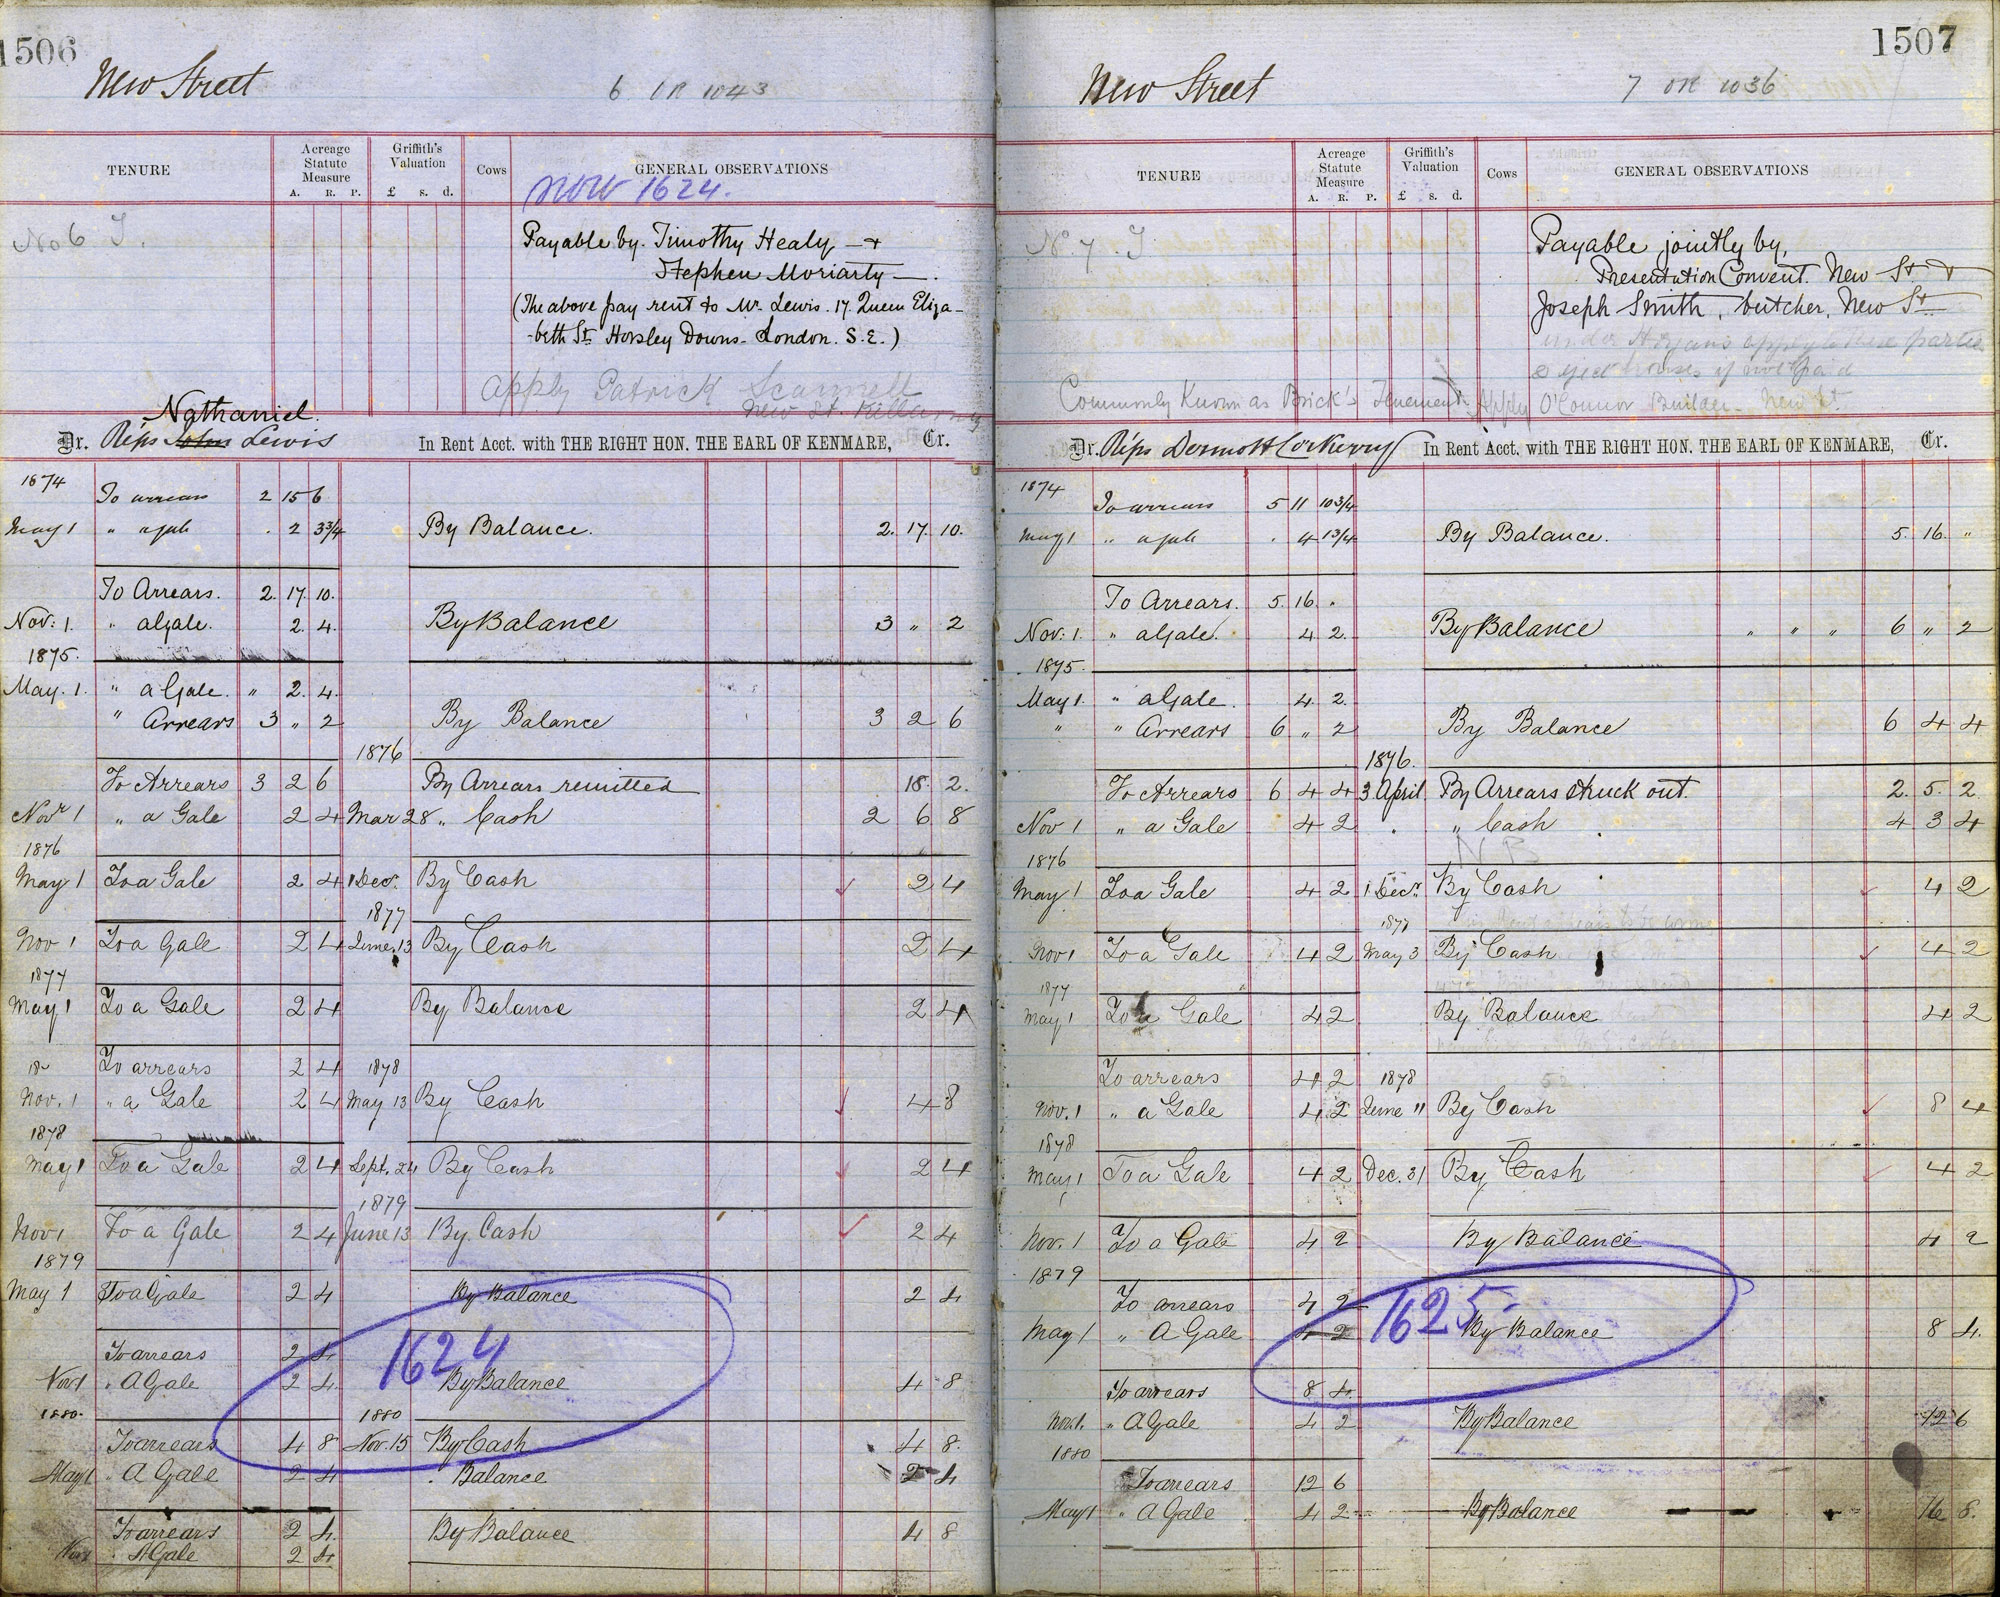 1506
New Street
6 OR 1043
TENURE
Acreage Statute Measure
A. R. P.
Griffith's Valuation
£ s. d.
Cows
GENERAL OBSERVATIONS
now 1624.
No 6 T.
Payable by Timothy Healy — +
Stephen Moriarty —.
(The above pay rent to Mr Lewis. 17. Queen Eliza-
-beth St Horsley Downs - London. S.E.)
Apply Patrick Scannell
New St. Killarney
Nathaniel
Dr. Reps John Lewis In Rent Acct. with THE RIGHT HON. THE EARL OF KENMARE, Cr.
1874 To arrears 2 15 6
May 1 " a gale . 2 3 3/4 By Balance. 2. 17. 10.
To Arrears. 2. 17. 10.
Nov: 1. " a Gale. 2. 4. By Balance 3 " 2
1875.
May. 1. " a Gale. " 2. 4.
" Arrears 3 " 2 By Balance 3 2 6
1876
To Arrears 3 2 6 By Arrears remitted 18. 2.
Novr 1 " a Gale 2 4 Mar 28 " Cash 2 6 8
1876
May 1 To a Gale 2 4 1 Decr. By Cash 2 4
1877
Nov 1 To a Gale 2 4 June. 13 By Cash 2 4
1877
May 1 To a Gale 2 4 By Balance 2 4
18- To arrears 2 4 1878
Nov. 1 " a Gale 2 4 May 13 By Cash 4 8
1878
May 1 To a Gale 2 4 Sept. 24 By Cash 2 4
1879
Nov 1 To a Gale 2 4 June 13 By Cash 2 4
1879
May 1 To a Gale 2 4 By Balance 2 4
1624
To arrears 2 4
Nov 1 " A Gale 2 4. By Balance 4 8
1880. 1880
To arrears 4 8 Nov. 15 By Cash 4 8.
May 1 " A Gale 2 4 " Balance 2 4
To arrears 2 4. By Balance 4 8
Nov 1 " A Gale 2 4
1507
New Street
7 OR 1036
TENURE
Acreage Statute Measure
A. R. P.
Griffith's Valuation
£ s. d.
Cows
GENERAL OBSERVATIONS
No. 7. T
Payable jointly by,
Presentation Convent. New St +
Joseph Smith, butcher, New St
under Hogans apply to these parties
& eject houses if not paid
Commonly Known as Brick's Tenement Apply O'Connor Builder - New St.
Dr. Reps Dermott Corkerry In Rent Acct. with THE RIGHT HON. THE EARL OF KENMARE, Cr.
1874 To arrears 5 11 10 3/4
May 1 " a gale . 4 1 3/4 By Balance. 5. 16. "
To Arrears. 5. 16. "
Nov: 1. " a Gale. 4 2. By Balance " " " 6 " 2
1875.
May 1. " a Gale. 4. 2.
" " Arrears 6. " 2 By Balance 6 4 4
1876.
To Arrears 6 4 4 3 April By Arrears struck out. 2. 5. 2
Nov 1 " a Gale 4 2 " " Cash 4 3 4
N B
1876
May 1 To a Gale 4 2 1 Decr. By Cash 4 2
1877
Nov 1 To a Gale 4 2 May 3 By Cash 4 2
1877
May 1 To a Gale 4 2 By Balance 4 2
To arrears 4 2 1878
Nov. 1 " a Gale 4 2 June 11 By Cash 8 4
1878
May 1 To a Gale 4 2 Dec. 31 By Cash 4 2
Nov. 1 To a Gale 4 2 By Balance 4 2
1879
1625
To arrears 4 2
May 1 " A Gale 4 2 By Balance 8 4.
To arrears 8 4.
Nov. 1. " A Gale 4 2 By Balance 12 6
1880
To arrears 12 6
May 1 " A Gale 4 2 By Balance 16 8.